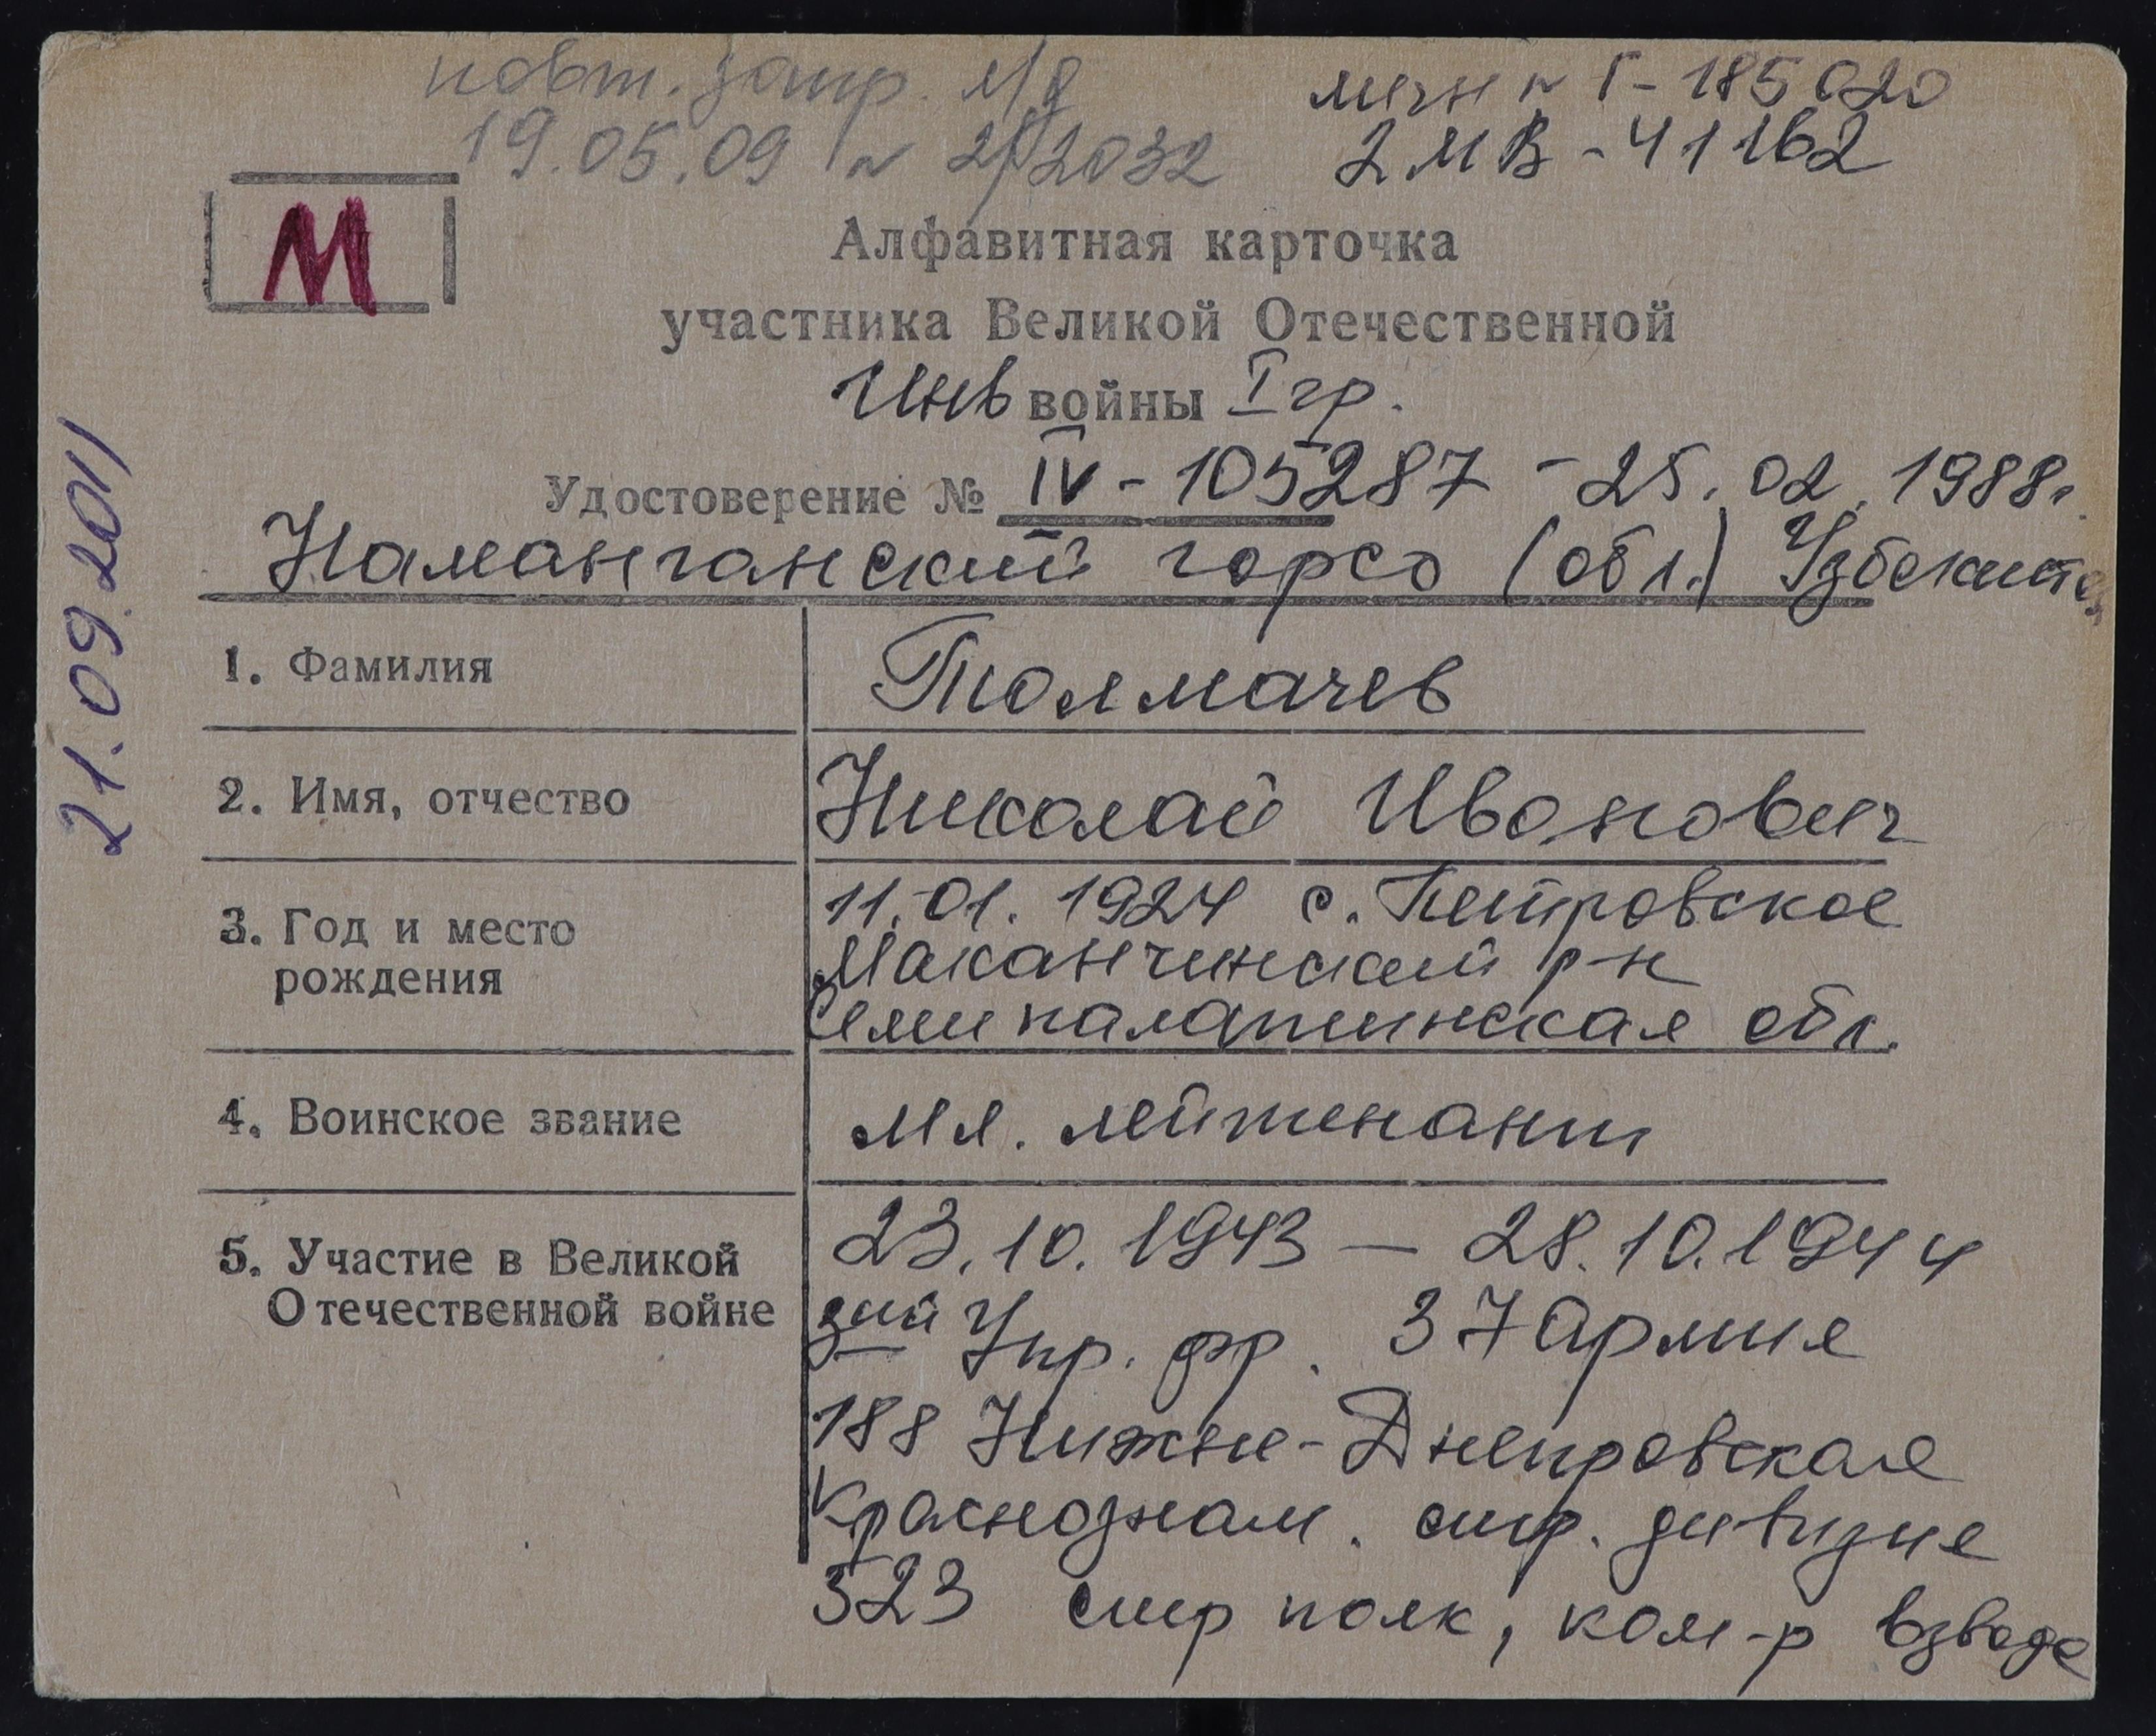 повт. запр. л/д
19.05.09 № 2/2032
№ Г-185020
2МВ-41162
М
Алфавитная карточка
участника Великой Отечественной
Инв войны I гр.
Удостоверение № IV-105287 - 25.02.1988г.
Наманганский горсо (обл.) Узбекистан
1. Фамилия
Толмачев
2. Имя, отчество
Николай Иванович
3. Год и место
рождения
11.01.1924 с. Петровское
Маканчинский р-н
Семипалатинская обл.
4. Воинское звание
мл. лейтенант
5. Участие в Великой
Отечественной войне
23.10.1943 — 28.10.1944
3ий Укр. фр. 37 Армия
188 Нижне-Днепровская
Краснознам. стр. дивизия
523 стр полк, ком-р взвода
21.09.2011